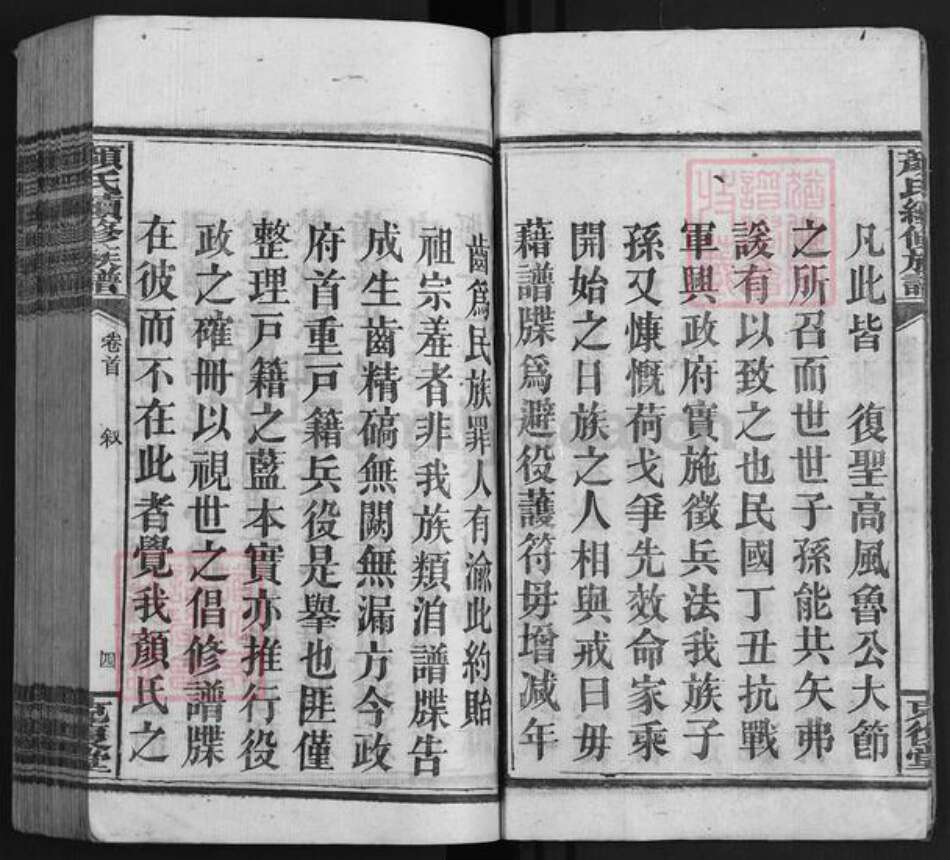 顏氏續修族譜
克復堂
凡此皆　復聖高風魯公大節
之所召而世世子孫能共矢弗
諼有以致之也民國丁丑抗戰
軍興政府實施徵兵法我族子
孫又慷慨荷戈爭先效命家乘
開始之日族之人相與戒曰毋
藉譜牒爲避役護符毋增減年
齒爲民族罪人有渝此約貽
祖宗羞者非我族類洎譜牒告
成生齒精碻無闕無漏方今政
府首重戸籍兵役是舉也匪僅
整理戸籍之藍本實亦推行役
政之確冊以視世之倡修譜牒
在彼而不在此者覺我顏氏之
顏氏續修族譜
卷首　叙
四
克復堂